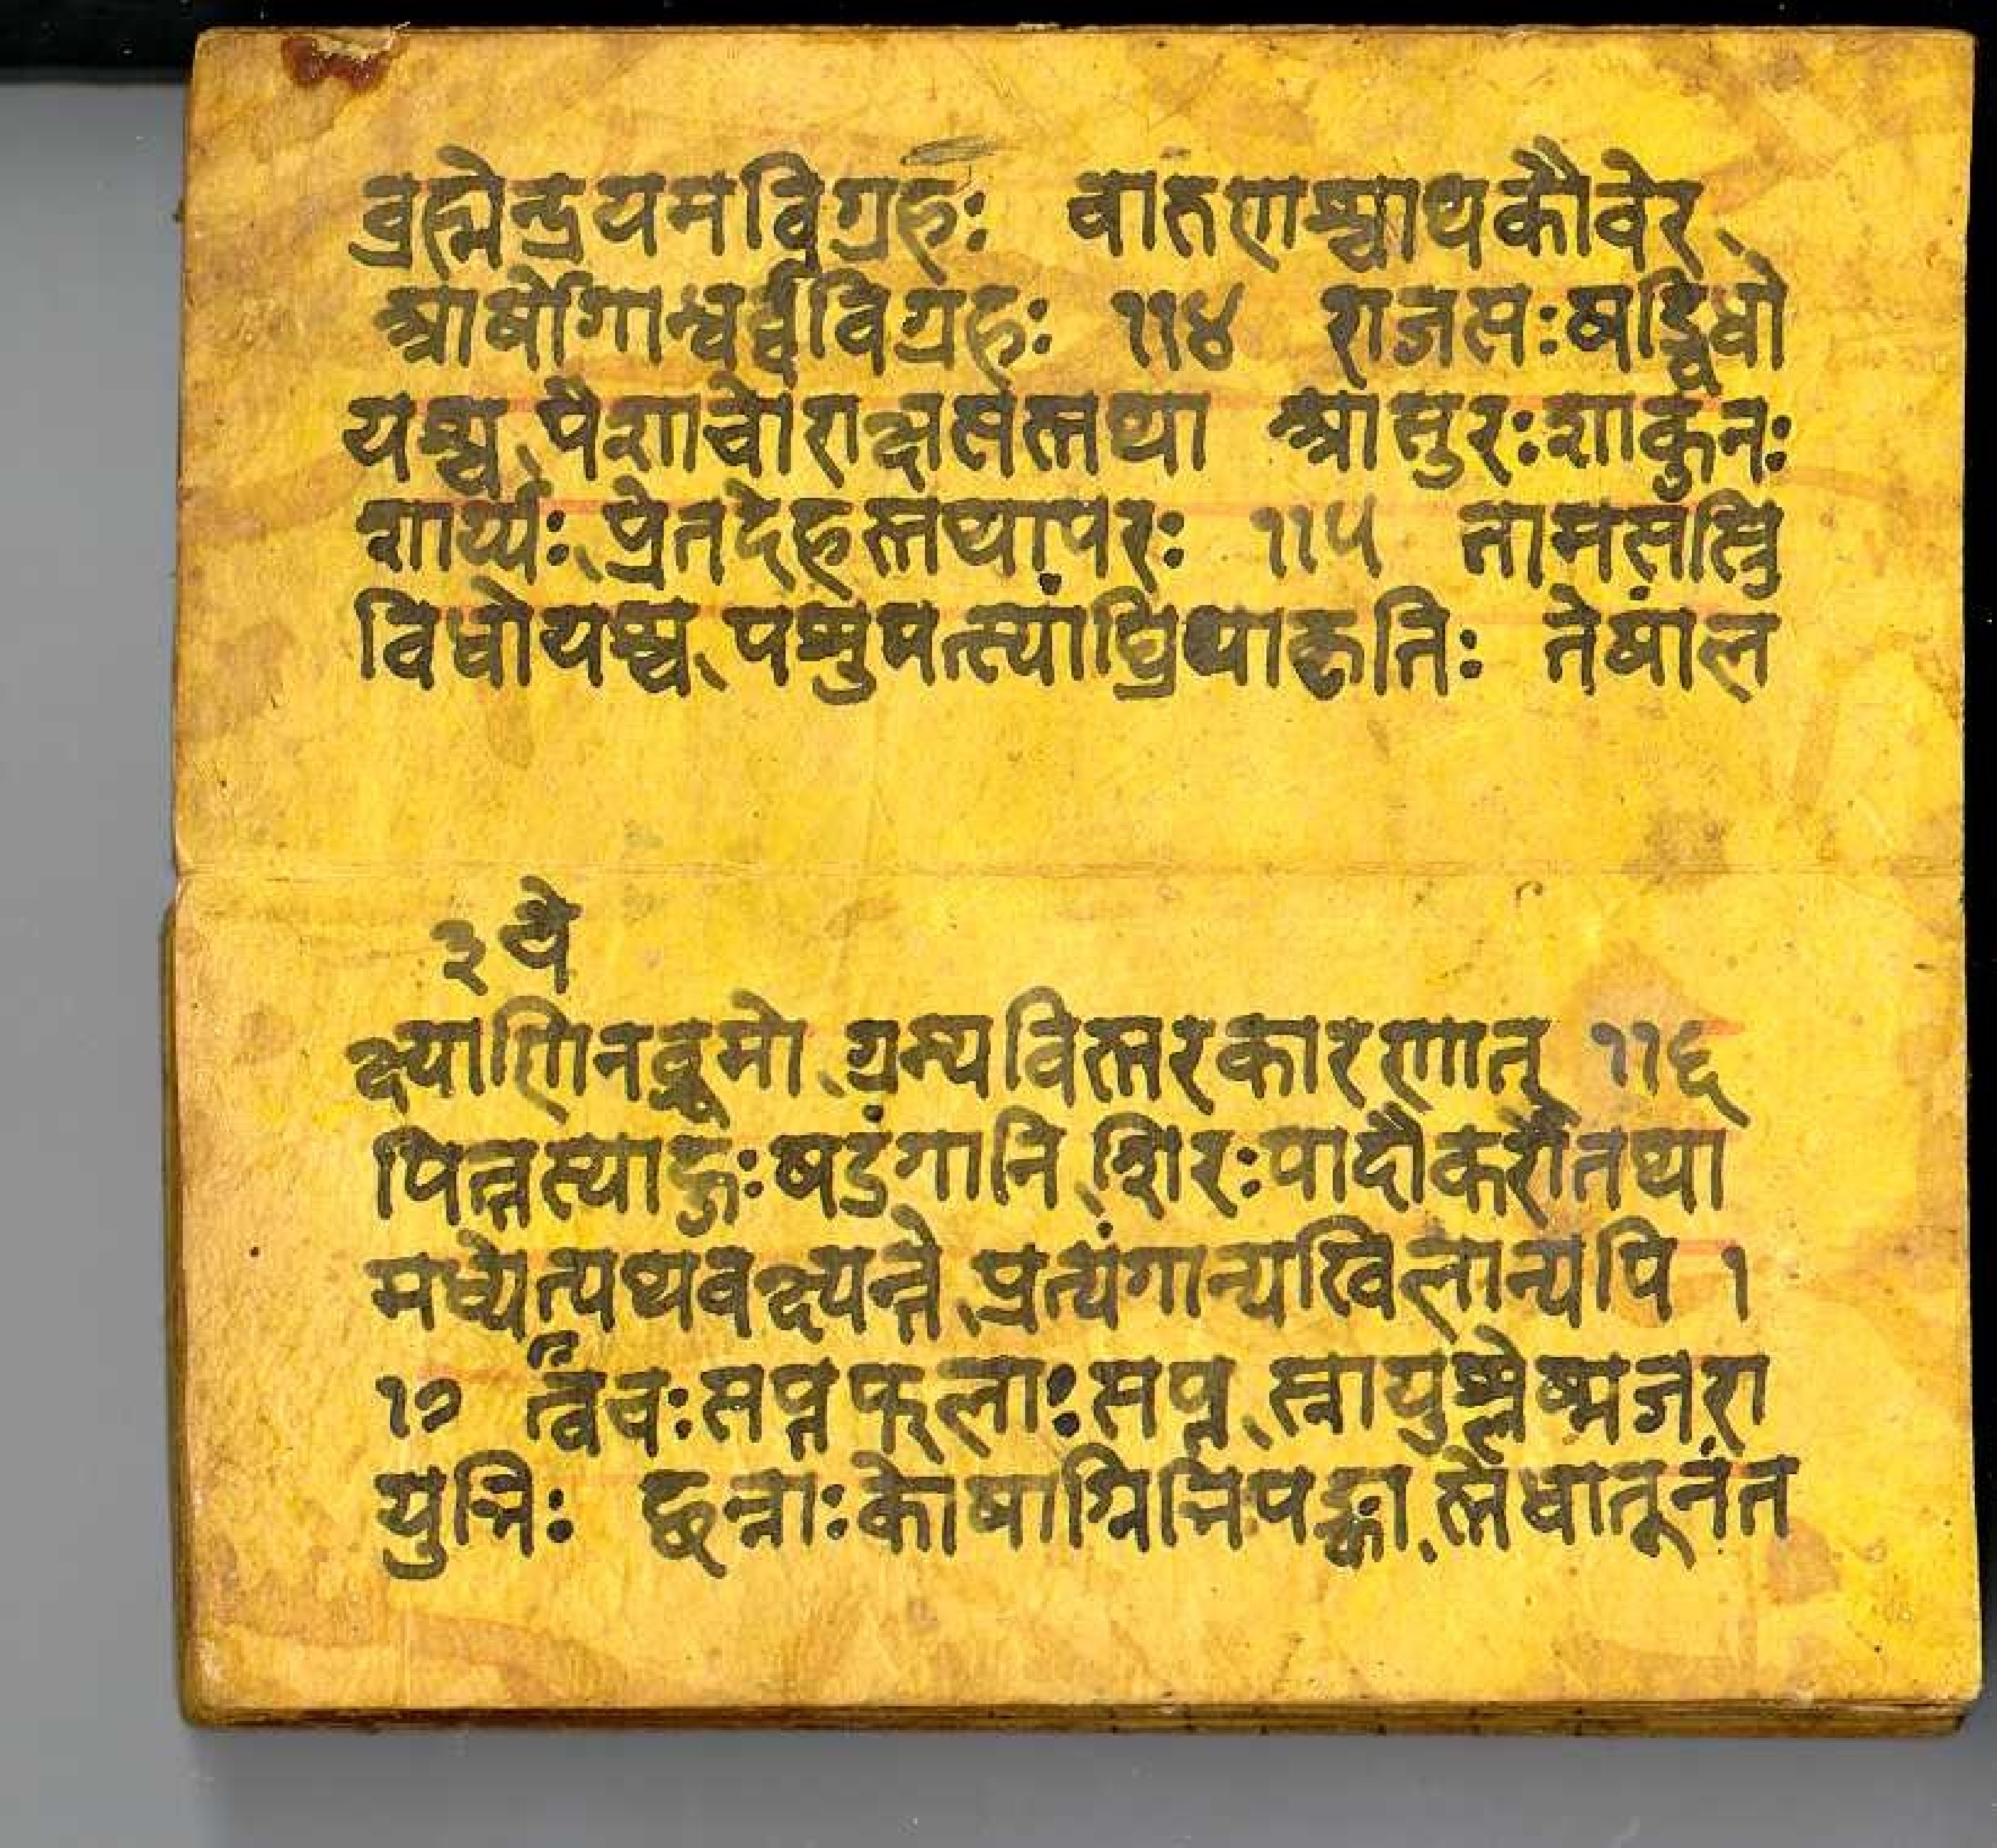 ब्रह्मेन्द्रयमविग्रहः वारुणश्चाथकौवेर
आर्षोगान्धर्व्वविग्रहः ११४ राजसःषड्विधो
यश्च पैशाचोराक्षसस्तथा आसुरःशाकुनः
शार्य्यः प्रेतदेहस्तथापरः ११५ तामसस्त्रि
विधोयश्च पशुमत्स्यांघ्रिपाकृतिः तेषांल
३ वे
क्ष्याणिनब्रूमो ग्रन्थविस्तरकारणात् ११६
पिन्नस्याङ्गःषडंगानि शिरःपादौकरौतथा
मध्येत्यथवक्ष्यन्ते प्रत्यंगान्यखिलान्यपि १
१७ त्वचःसप्तकलाःसप्त स्नायुश्लेष्मजरा
युभिः छन्नाःकोषाग्निभिपक्का स्तेधातूनंत